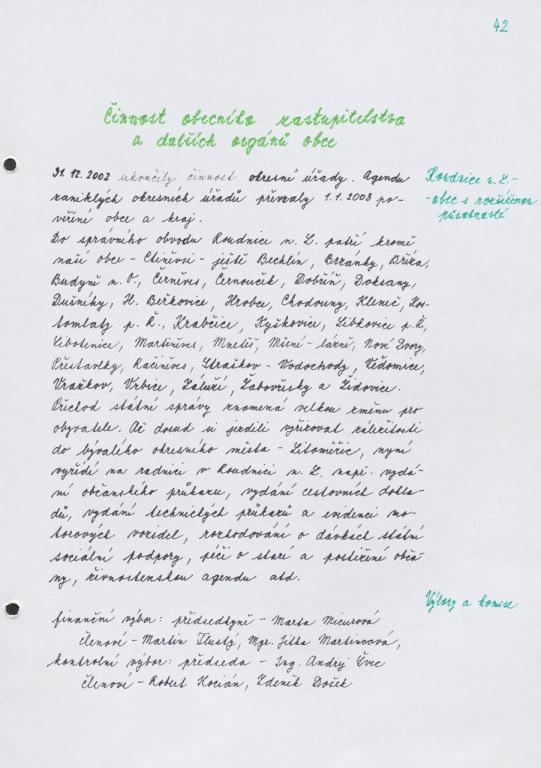 42
Činnost obecního zastupitelstva
a dalších orgánů obce
31.12.2002 ukončily činnost okresní úřady. Agendu
zaniklých okresních úřadů převzaly 1.1.2003 po-
věřené obce a kraj.
Roudnice n. L. -
- obec s rozšířenou
působností
Do správního obvodu Roudnice n. L. patří kromě
naší obce - Ctiněvsi - ještě Bechlín, Brzánky, Bříza,
Budyně n. O., Černěves, Černouček, Dobříň, Doksany,
Dušníky, H. Beřkovice, Hrobce, Chodouny, Kleneč, Kos-
tomlaty p. Ř., Krabčice, Kyškovice, Libkovice p. Ř.,
Libotenice, Martiněves, Mnetěš, Mšené-lázně, Nové Dvory,
Přestavlky, Račiněves, Straškov - Vodochody, Vědomice,
Vražkov, Vrbice, Záluží, Žabovřesky a Židovice.
Přechod státní správy znamená velkou změnu pro
obyvatele. Ač dosud si jezdili vyřizovat záležitosti
do bývalého okresního města - Litoměřic, nyní
vyřídí na radnici v Roudnici n. L. např. vydá-
ní občanského průkazu, vydání cestovních dokla-
dů, vydání technických průkazů a evidenci mo-
torových vozidel, rozhodování o dávkách státní
sociální podpory, péči o staré a postižené obča-
ny, živnostenskou agendu atd.
Výbory a komise
finanční výbor: předsedkyně - Marta Micurová
členové - Martin Tlustý, Mgr. Jitka Martincová,
kontrolní výbor: předseda - Ing. Andrej Švec
členové - Robert Kocián, Zdeněk Došek